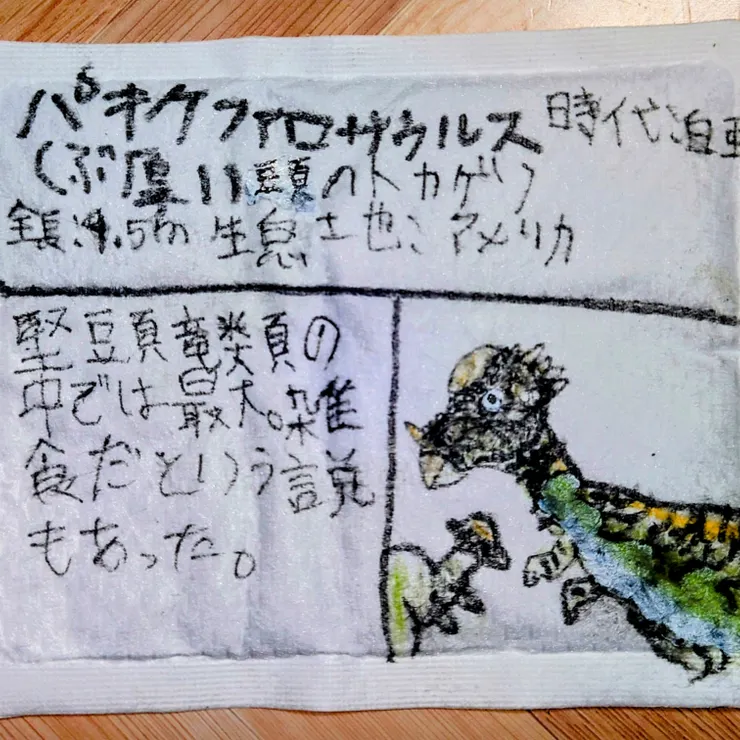 パキケファロザウルス 時代:白亜
(ぶ厚い頭のトカゲ)
全長:4.5m 生息地:アメリカ
堅頭竜類の
中では最大。雑
食だという説
もあった。